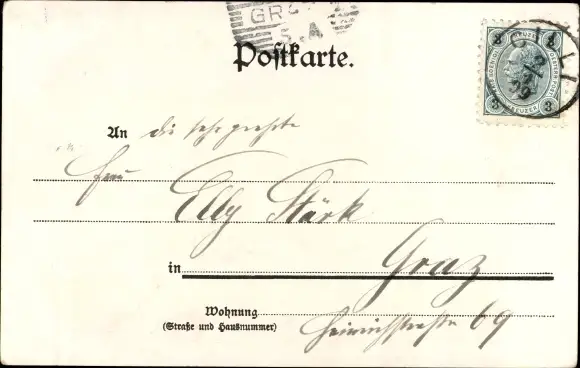 GR
5.A
Postkarte.
3 KREUZER 3
CILLI
An die sehr geehrte
Frau
Elly Stärk
in Graz
Wohnung
(Straße und Hausnummer)
Heinrichstraße 69